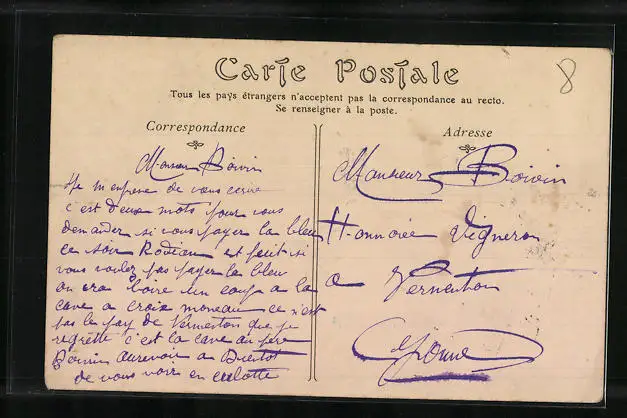 Carte Postale
Tous les pays étrangers n'acceptent pas la correspondance au recto.
Se renseigner à la poste.
8
Correspondance
Adresse
Monsieur Boivin
Je m enprese de vous ecrire
c'est deux mots pour vous
demander si vous payer la bleu
ce soir Rodieau et petit si
vous voulez pas payer la bleu
on ora boire un coup a la
cave a croix moneau ce n'est
pas le pay de Vermenton que je
regrette c'est la cave au père
Boivin aurevoir a Bientot
de vous voir en culotte
Monsieur Boivin
Honnorée Vigneron
a Vermenton
Yonne